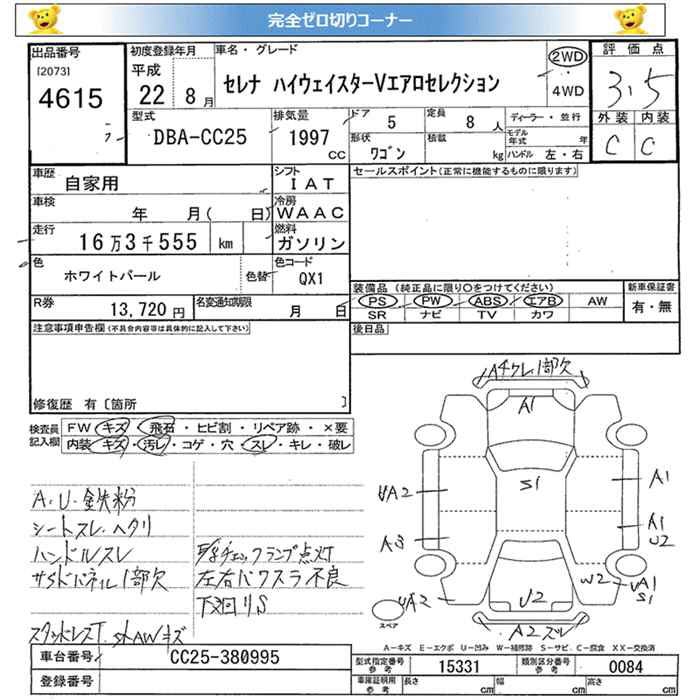 完全ゼロ切りコーナー
出品番号
[2073]
4615
初度登録年月
平成
22 8月
車名・グレード
セレナ ハイウェイスターVエアロセレクション
2WD
4WD
評価点
3.5
外装 内装
C C
型式
DBA-CC25
排気量
1997
CC
ドア
5
定員
8人
形状
ワゴン
積載
kg
ディーラー・並行
モデル年式 年
ハンドル 左・右
車歴
自家用
シフト
IAT
車検
年 月( 日)
冷房
WAAC
走行
16万3千555 km
燃料
ガソリン
色
ホワイトパール
色替
色コード
QX1
R券
13,720円
名変通知期限
月 日
セールスポイント(正常に機能するものに限ります)
装備品(純正品に限り○をつけてください)
新車保証書
PS PW ABS エアB AW
SR ナビ TV カワ
有・無
後日品
注意事項申告欄(不具合内容等は具体的に記入して下さい)
修復歴 有[箇所 ]
検査員記入欄
FW キズ・飛石・ヒビ割・リペア跡・×要
内装 キズ・汚レ・コゲ・穴・スレ・キレ・破レ
A.U.鉄粉
シートスレ.ヘタリ
ハンドルスレ
チェックランプ点灯
左右パワスラ不良
下廻りS
キズ
A1
S1
A2
A3
A1
A1
U2
W2
A1
S1
A2
U2
A2スレ
スペア
A−キズ E−エクボ U−凹み W−補修跡 S−サビ C−腐食 XX−交換済
車台番号
CC25-380995
登録番号
型式指定番号
参考
15331
類別区分番号
参考
0084
車庫証明用
参考
長さ cm
幅 cm
高さ cm